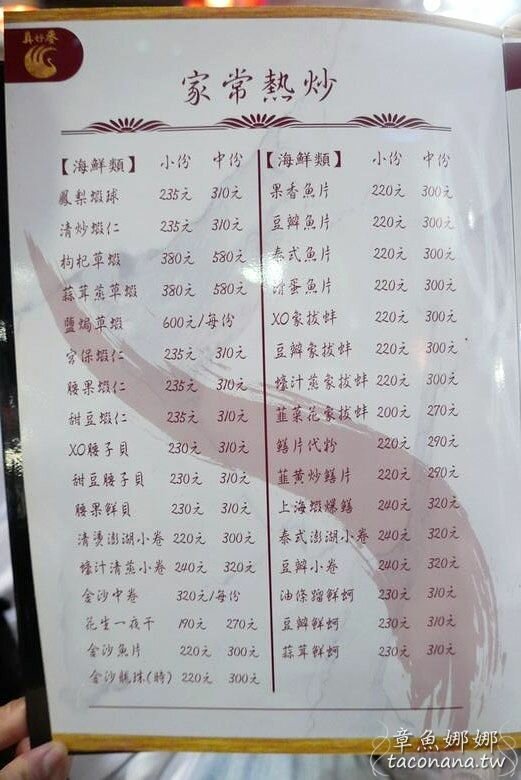 真好春
家常熱炒
【海鮮類】 小份 中份
鳳梨蝦球 235元 310元
清炒蝦仁 235元 310元
枸杞草蝦 380元 580元
蒜茸蒸草蝦 380元 580元
鹽焗草蝦 600元/每份
宮保蝦仁 235元 310元
腰果蝦仁 235元 310元
甜豆蝦仁 235元 310元
XO腰子貝 230元 310元
甜豆腰子貝 230元 310元
腰果鮮貝 230元 310元
清燙澎湖小卷 220元 300元
蠔汁清蒸小卷 240元 320元
金沙中卷 320元/每份
花生一夜干 190元 270元
金沙魚片 220元 300元
金沙龍珠(時) 220元 300元
【海鮮類】 小份 中份
果香魚片 220元 300元
豆瓣魚片 220元 300元
泰式魚片 220元 300元
滑蛋魚片 220元 300元
XO象拔蚌 220元 300元
豆瓣象拔蚌 220元 300元
蠔汁蒸象拔蚌 220元 300元
韮菜花象拔蚌 200元 270元
鱔片代粉 220元 290元
韮黃炒鱔片 220元 290元
上海蝦爆鱔 240元 320元
泰式澎湖小卷 240元 320元
豆瓣小卷 240元 320元
油條蹓鮮蚵 230元 310元
豆瓣鮮蚵 230元 310元
蒜茸鮮蚵 230元 310元
章魚娜娜
taconana.tw